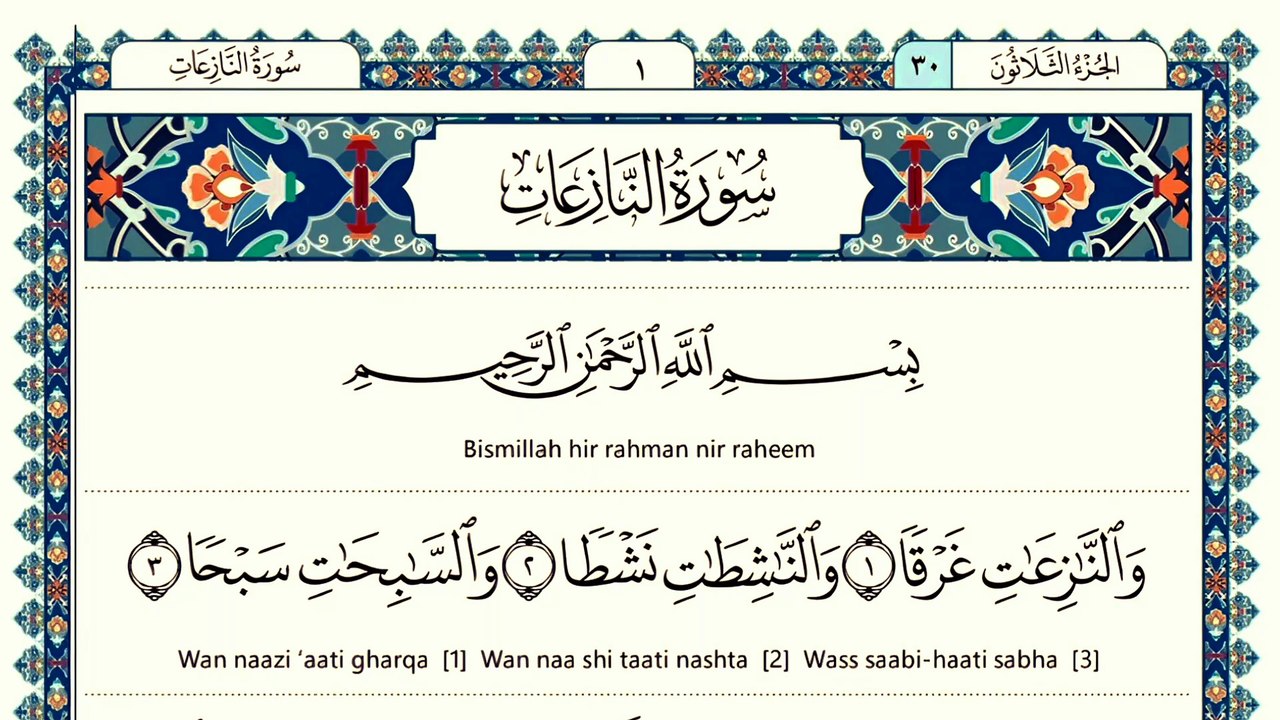 الجُزْءُ الثَّلَاثُونَ ٣٠ ١ سُورَةُ النَّازِعَاتِ
سُورَةُ النَّازِعَاتِ
بِسْمِ ٱللَّهِ ٱلرَّحْمَٰنِ ٱلرَّحِيمِ
Bismillah hir rahman nir raheem
وَٱلنَّٰزِعَٰتِ غَرْقًا ١ وَٱلنَّٰشِطَٰتِ نَشْطًا ٢ وَٱلسَّٰبِحَٰتِ سَبْحًا ٣
Wan naazi ‘aati gharqa [1] Wan naa shi taati nashta [2] Wass saabi-haati sabha [3]